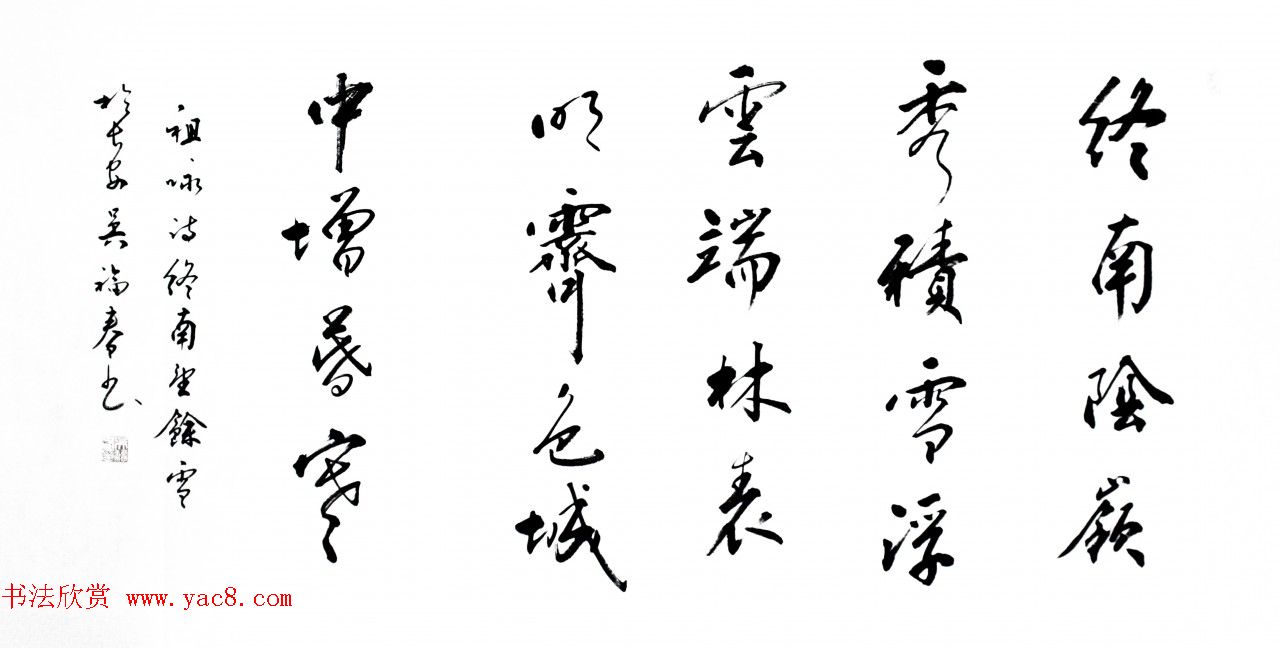 終南陰嶺
秀積雪浮
雲端林表
明霽色城
中增暮寒
祖咏诗終南望餘雪
於長安吴福春书
书法欣赏 www.yac8.com